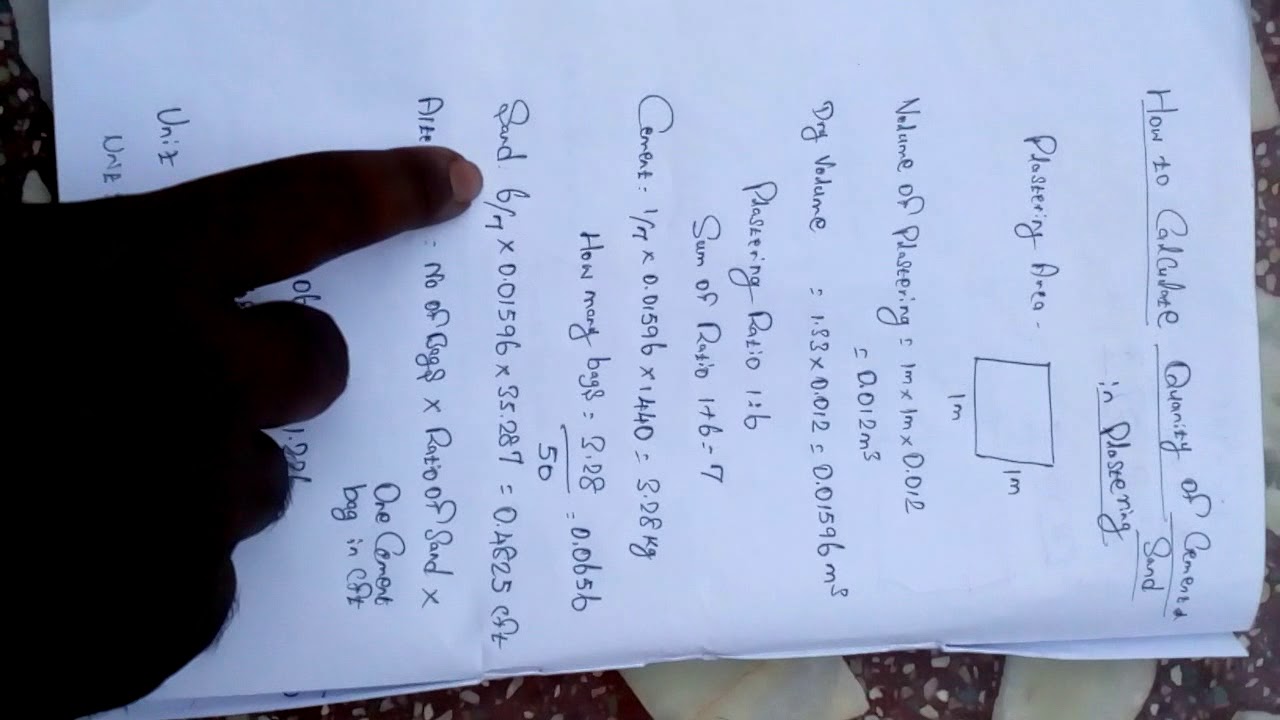 How to Calculate Quanity of Cement &
Sand
in Plastering
Plastering Area -
1m
1m
Volume of Plastering = 1m x 1m x 0.012
= 0.012m³
Dry Volume = 1.33 x 0.012 = 0.01596m³
Plastering Ratio 1:6
Sum of Ratio 1+6 = 7
Cement: 1/7 x 0.01596 x 1440 = 3.28 kg
How many bags = 3.28
50
= 0.0656
Sand: 6/7 x 0.01596 x 35.287 = 0.4825 cft
= No of Bags x Ratio of Sand x
One Cement
bag in cft
Unit
Unit